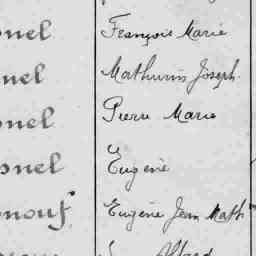 onel François Marie
onel Mathurin Joseph
onel Pierre Marie
onel Eugène
onouf Eugène Jean Math